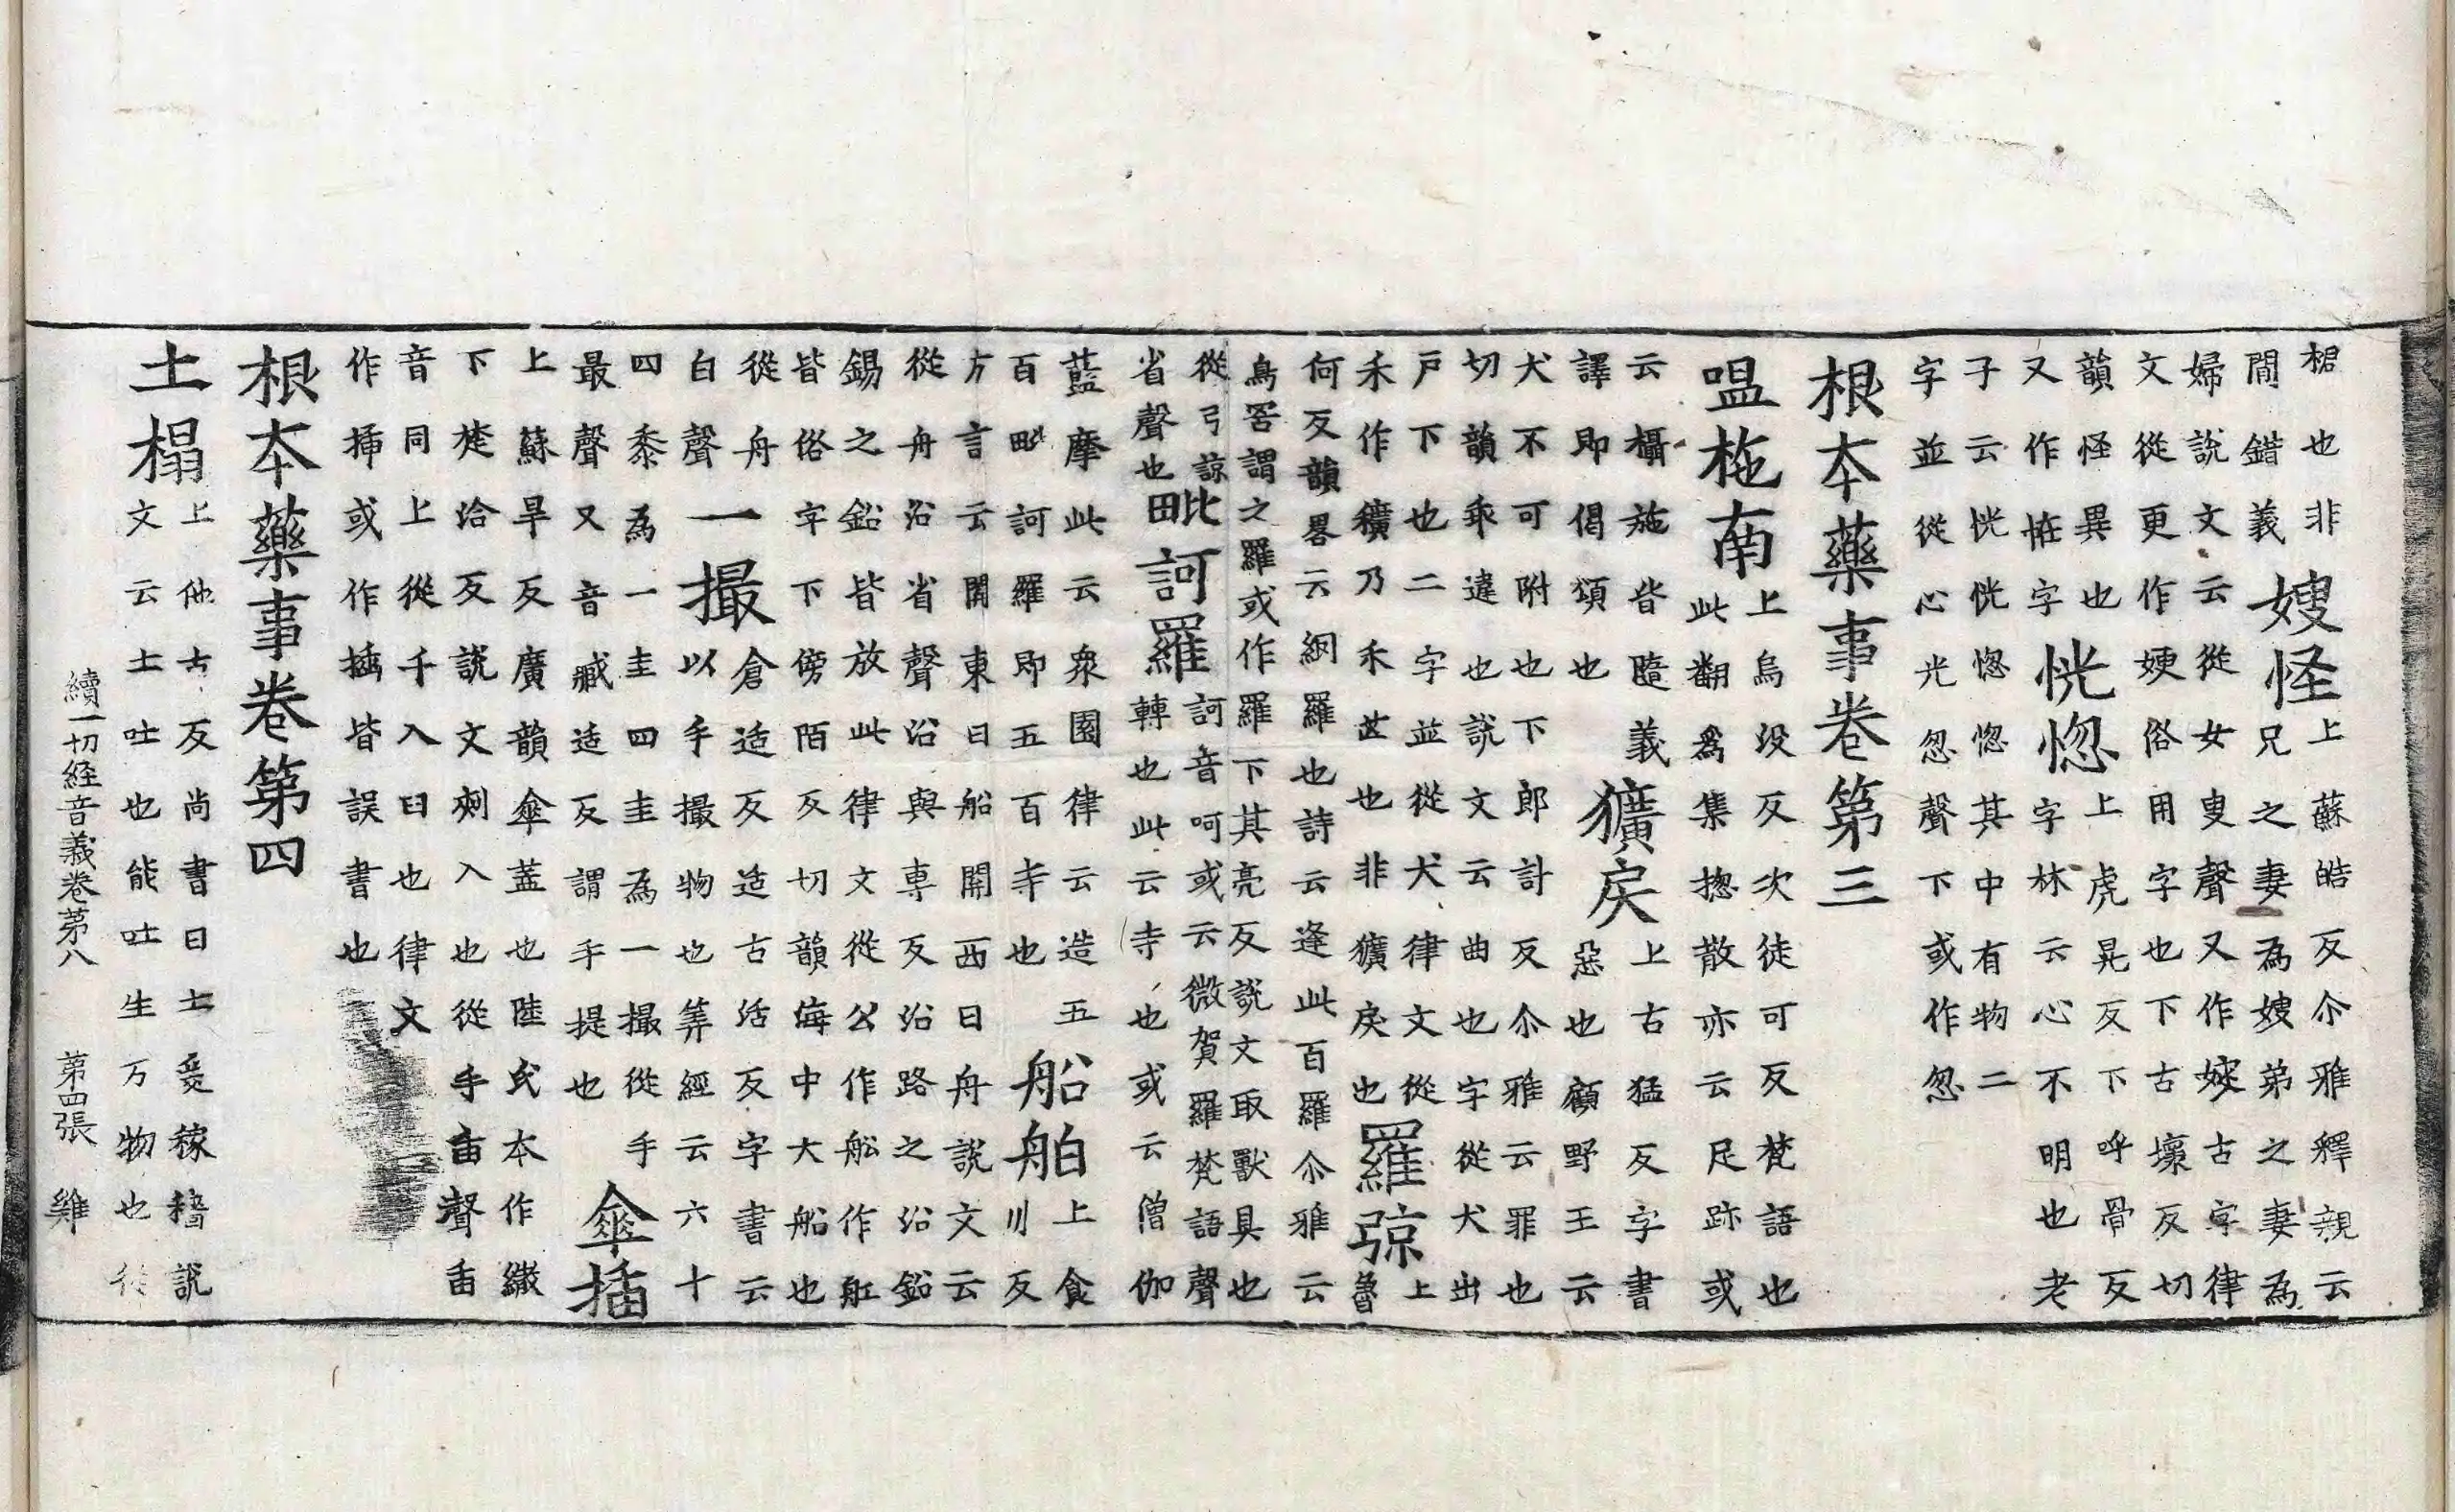 椐也非
間錯義
嫂怪
上蘇皓反尒雅釋親云
兄之妻為嫂弟之妻為
婦說文云從女叟聲又作㛮古字律
文從更作㛐俗用字也下古壞反切
韻怪異也
又作恠字
恍惚
上虎晃反下呼骨反
字林云心不明也老
子云恍恍惚惚其中有物二
字並從心光忽聲下或作忽
根本藥事卷第三
嗢柂南
上烏没反次徒可反梵語也
此翻為集揔散亦云足跡或
云欇施皆隨義
譯即偈頌也
獷戾
上古猛反字書
惡也顧野王云
犬不可附也下郎計反尒雅云罪也
切韻乖違也說文云曲也字從犬出
戶下也二字並從犬律文從
禾作穬乃禾芒也非獷戾也
羅弶
上
魯
何反韻畧云網羅也詩云逢此百羅尒雅云
鳥罟謂之羅或作羅下其亮反說文取獸具也
從弓諒
省聲也
毗訶羅
訶音呵或云微賀羅梵語聲
轉也此云寺也或云僧伽
藍摩此云衆園律云造五
百毗訶羅即五百寺也
船舶
上食
川反
方言云關東曰船關西曰舟說文云
從舟沿省聲沿與專反沿路之沿鉛
錫之鉛皆放此律文從公作舩作舡
皆俗字下傍陌反切韻海中大船也
從舟
白聲
一撮
倉适反适古活反字書云
以手撮物也筭經云六十
四黍為一圭四圭為一撮從手
最聲又音臧适反謂手提也
傘插
上蘇旱反廣韻傘蓋也陸氏本作繖
下楚洽反說文刺入也從手臿聲臿
音同上從千入臼也律文
作揷或作挿皆誤書也
根本藥事卷第四
土榻
上他古反尚書曰土爰稼穡說
文云土吐也能吐生万物也從
續一切経音義卷第八 第四張 雞